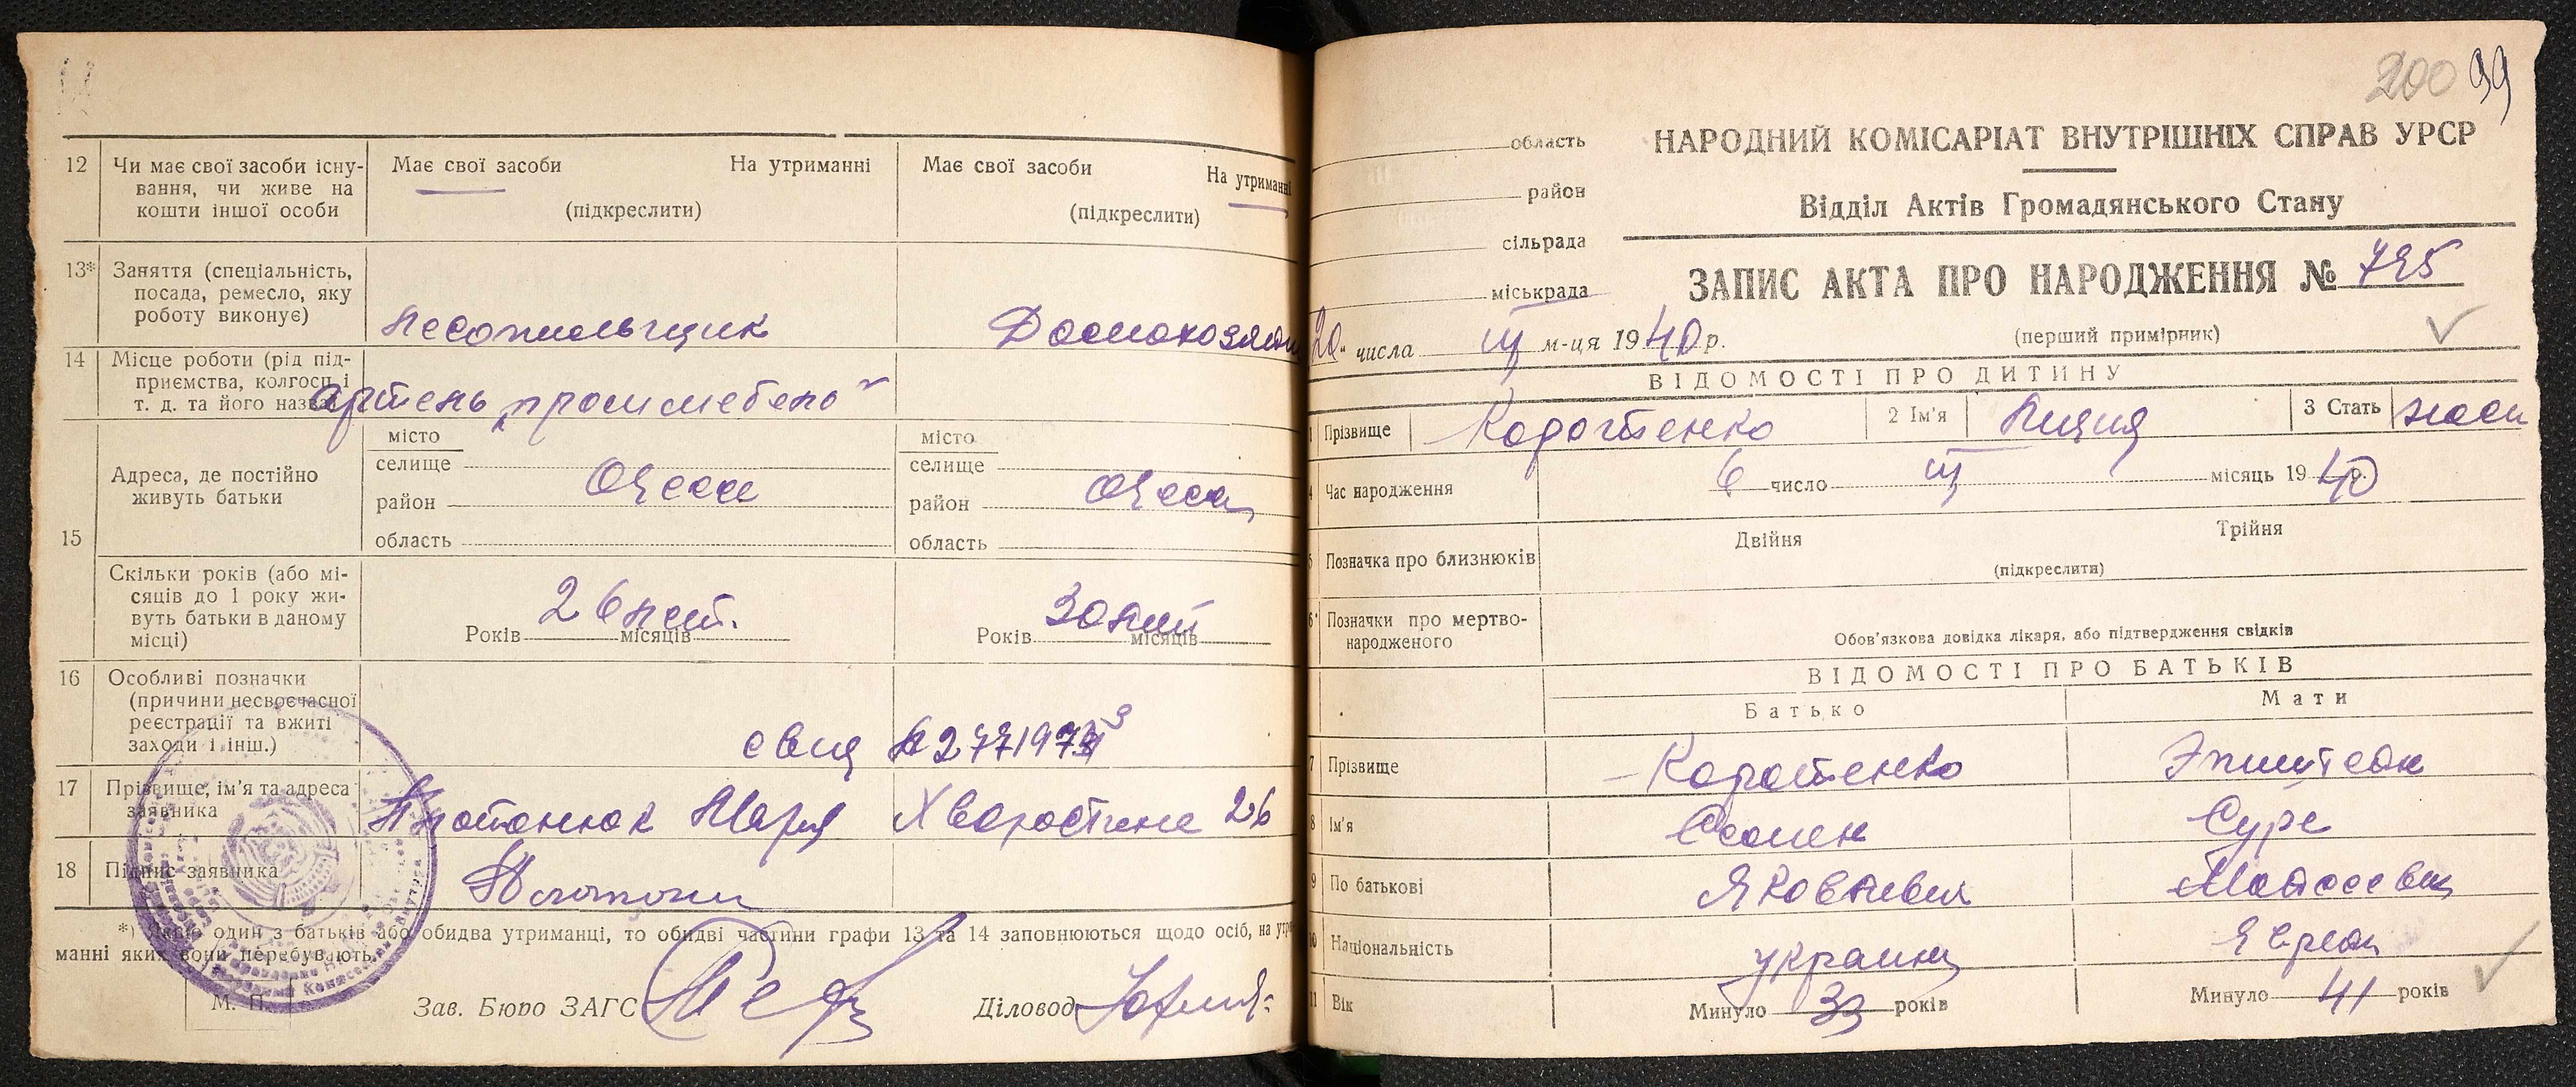 12 Чи має свої засоби існу-
вання, чи живе на
кошти іншої особи
Має свої засоби На утриманні
(підкреслити)
Має свої засоби На утриманні
(підкреслити)
13* Заняття (спеціальність,
посада, ремесло, яку
роботу виконує)
Лесопильщик
Домохозяй
14 Місце роботи (рід під-
приємства, колгосп і
т. д. та його назва)
артель „проммебель"
15
Адреса, де постійно
живуть батьки
місто
селище
район
область
Одесса
місто
селище
район
область
Одесса
Скільки років (або мі-
сяців до 1 року жи-
вуть батьки в даному
місці)
26 лет.
Років місяців
30 лет
Років місяців
16 Особливі позначки
(причини несвоєчасної
реєстрації та вжиті
заходи і інш.)
17 Прізвище, ім'я та адреса
заявника
Хворостина 26
18 Підпис заявника
*) Якщо один з батьків або обидва утриманці, то обидві частини графи 13 та 14 заповнюються щодо осіб, на утри-
манні яких вони перебувають.
М. П.
Зав. Бюро ЗАГС
Діловод
200 99
область
район
сільрада
міськрада
НАРОДНИЙ КОМІСАРІАТ ВНУТРІШНІХ СПРАВ УРСР
Відділ Актів Громадянського Стану
ЗАПИС АКТА ПРО НАРОДЖЕННЯ № 795
(перший примірник)
20 числа III м-ця 1940 р.
ВІДОМОСТІ ПРО ДИТИНУ
1 Прізвище Коротенко 2 Ім'я Лидия 3 Стать жен
4 Час народження 6 число III місяць 1940 р.
5 Позначка про близнюків Двійня Трійня
(підкреслити)
6* Позначки про мертво-
народженого
Обов'язкова довідка лікаря, або підтвердження свідків
ВІДОМОСТІ ПРО БАТЬКІВ
Батько Мати
7 Прізвище Коротенко Эпштейн
8 Ім'я Семен Сура
9 По батькові Яковлевич Моисеевн
10 Національність украинц Еврей
11 Вік Минуло 33 років Минуло 41 років